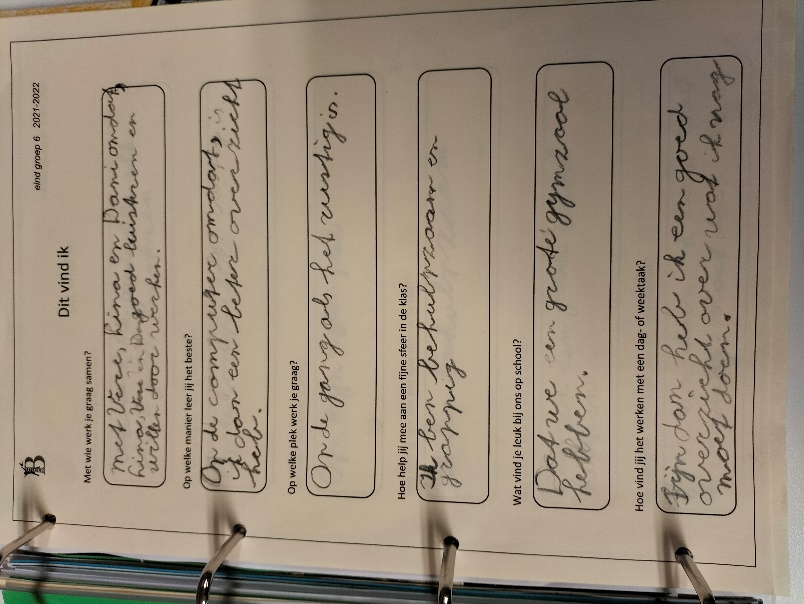 eind groep 6 2021-2022
Dit vind ik
Met wie werk je graag samen?
met Vere, Lina en Dani omdat,
Lina Vere en goed luisteren en
willen door werken.
Op welke manier leer jij het beste?
Op de computer omdat,
ik dan een beter overzicht
heb.
Op welke plek werk je graag?
Op de gang als het rustig is.
Hoe help jij mee aan een fijne sfeer in de klas?
Ik ben behulpzaam en
grappig
Wat vind je leuk bij ons op school?
Dat we een grote gymzaal
hebben.
Hoe vind jij het werken met een dag- of weektaak?
Fijn dan heb ik een goed
overzicht over wat ik nog
moet doen.